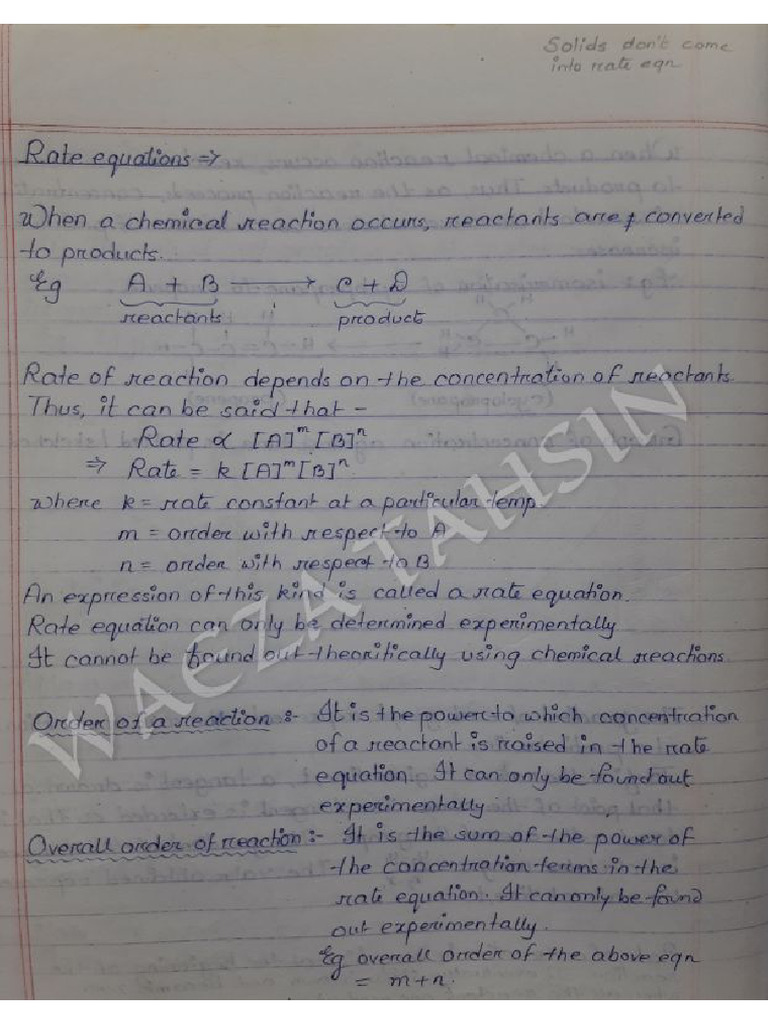 Solids don't come
into rate eqn
Rate equations ⇒
When a chemical reaction occurs, reactants are converted
to products.
Eg A + B ⟶ C + D
reactants product
Rate of reaction depends on the concentration of reactants
Thus, it can be said that -
Rate ∝ [A]^m [B]^n
⇒ Rate = k [A]^m [B]^n
where k = rate constant at a particular temp.
m = order with respect to A
n = order with respect to B
An expression of this kind is called a rate equation.
Rate equation can only be determined experimentally
It cannot be found out theoritically using chemical reactions.
Order of a reaction :- It is the power to which concentration
of a reactant is raised in the rate
equation. It can only be found out
experimentally.
Overall order of reaction :- It is the sum of the power of
the concentration terms in the
rate equation. It can only be found
out experimentally.
Eg overall order of the above eqn
= m+n.
WAEZA TAHSIN